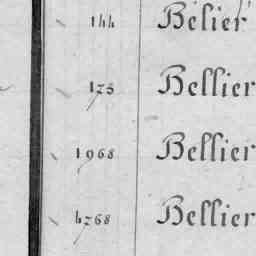 144 Bélier
175 Bellier
1968 Bellier
4768 Bellier